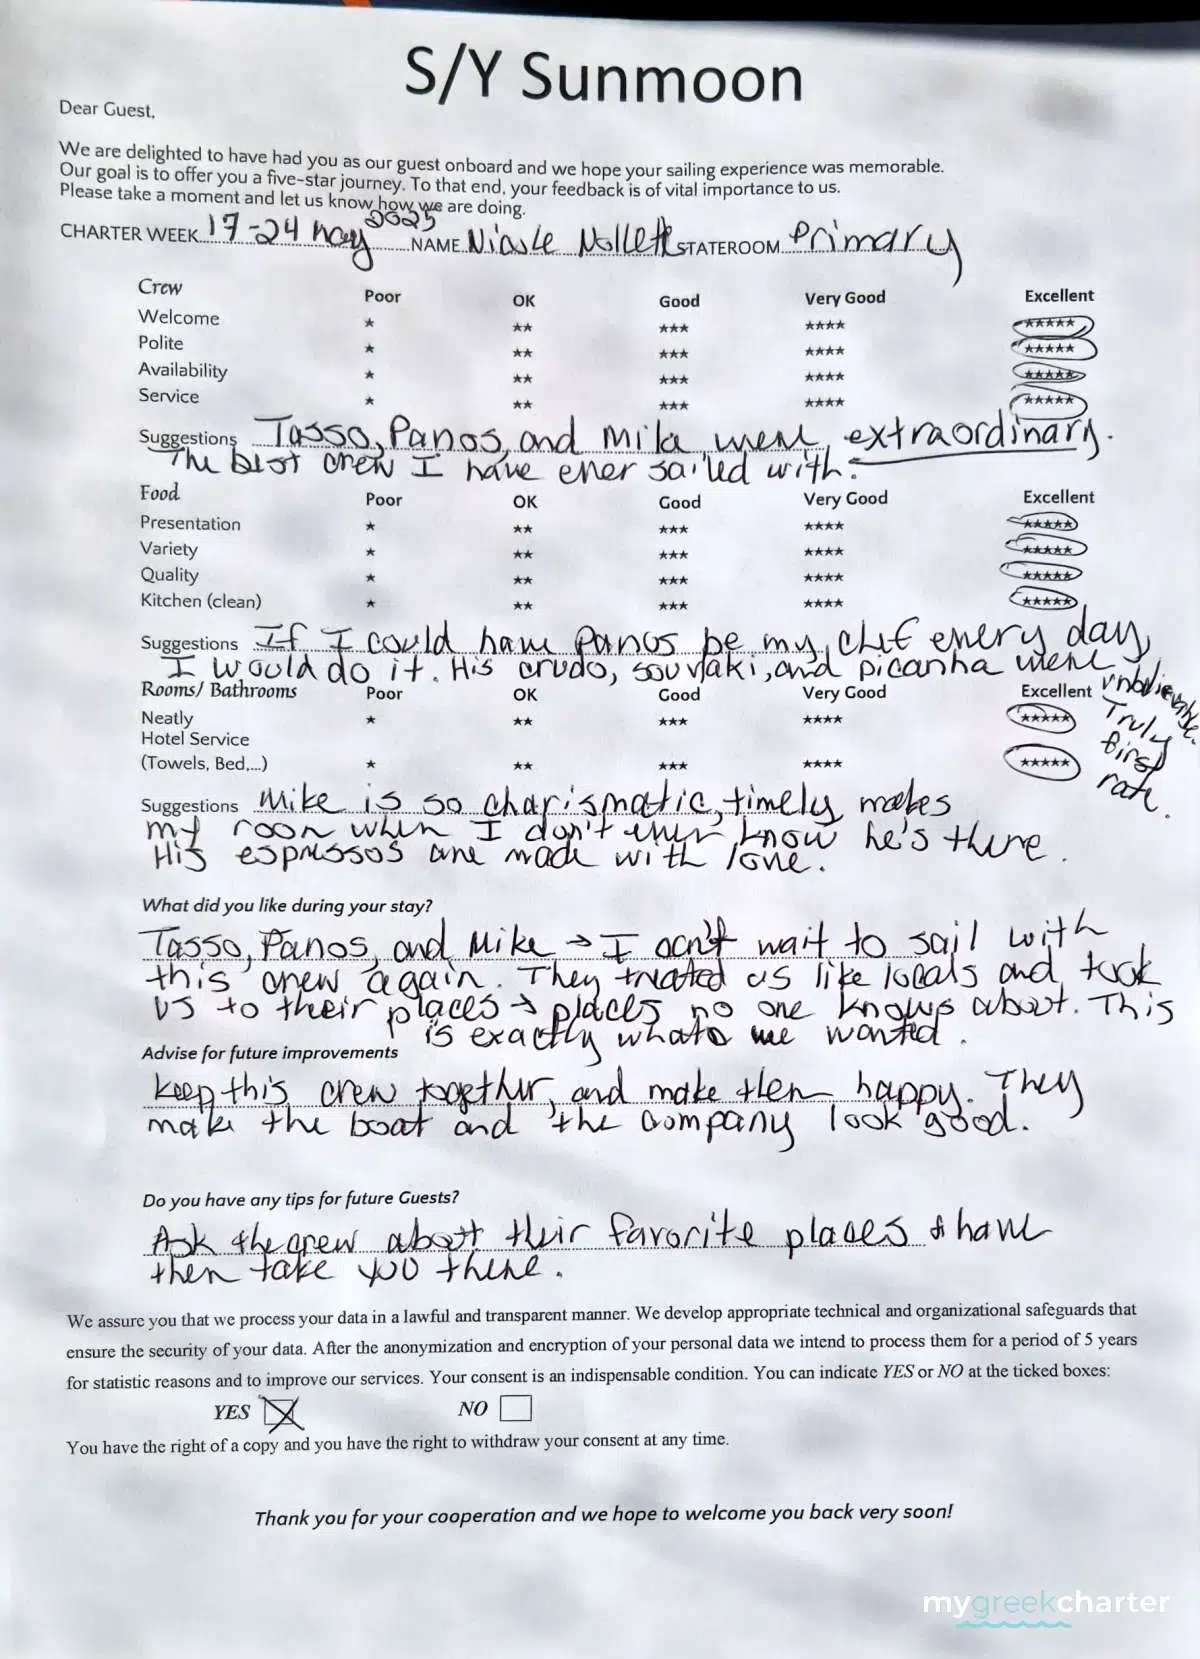 S/Y Sunmoon
Dear Guest,
We are delighted to have had you as our guest onboard and we hope your sailing experience was memorable.
Our goal is to offer you a five-star journey. To that end, your feedback is of vital importance to us.
Please take a moment and let us know how we are doing.
CHARTER WEEK 17-24 May 2025 NAME Nicole Nollett STATEROOM Primary
Crew Poor OK Good Very Good Excellent
Welcome ★ ★★ ★★★ ★★★★ ★★★★★
Polite ★ ★★ ★★★ ★★★★ ★★★★★
Availability ★ ★★ ★★★ ★★★★ ★★★★★
Service ★ ★★ ★★★ ★★★★ ★★★★★
Suggestions Tasso, Panos, and Mike were extraordinary.
The best crew I have ever sailed with.
Food Poor OK Good Very Good Excellent
Presentation ★ ★★ ★★★ ★★★★ ★★★★★
Variety ★ ★★ ★★★ ★★★★ ★★★★★
Quality ★ ★★ ★★★ ★★★★ ★★★★★
Kitchen (clean) ★ ★★ ★★★ ★★★★ ★★★★★
Suggestions If I could have Panos be my chef every day,
I would do it. His crudo, souvlaki, and picanha were
unbelievable.
Truly
first
rate.
Rooms/ Bathrooms Poor OK Good Very Good Excellent
Neatly ★ ★★ ★★★ ★★★★ ★★★★★
Hotel Service
(Towels, Bed,...) ★ ★★ ★★★ ★★★★ ★★★★★
Suggestions Mike is so charismatic, timely, makes
my room when I don't even know he's there.
His espressos are made with love.
What did you like during your stay?
Tasso, Panos, and Mike → I can't wait to sail with
this crew again. They treated us like locals and took
us to their places → places no one knows about. This
is exactly what we wanted.
Advise for future improvements
Keep this crew together, and make them happy. They
make the boat and the company look good.
Do you have any tips for future Guests?
Ask the crew about their favorite places & have
them take you there.
We assure you that we process your data in a lawful and transparent manner. We develop appropriate technical and organizational safeguards that
ensure the security of your data. After the anonymization and encryption of your personal data we intend to process them for a period of 5 years
for statistic reasons and to improve our services. Your consent is an indispensable condition. You can indicate YES or NO at the ticked boxes:
YES NO
You have the right of a copy and you have the right to withdraw your consent at any time.
Thank you for your cooperation and we hope to welcome you back very soon!
mygreekcharter